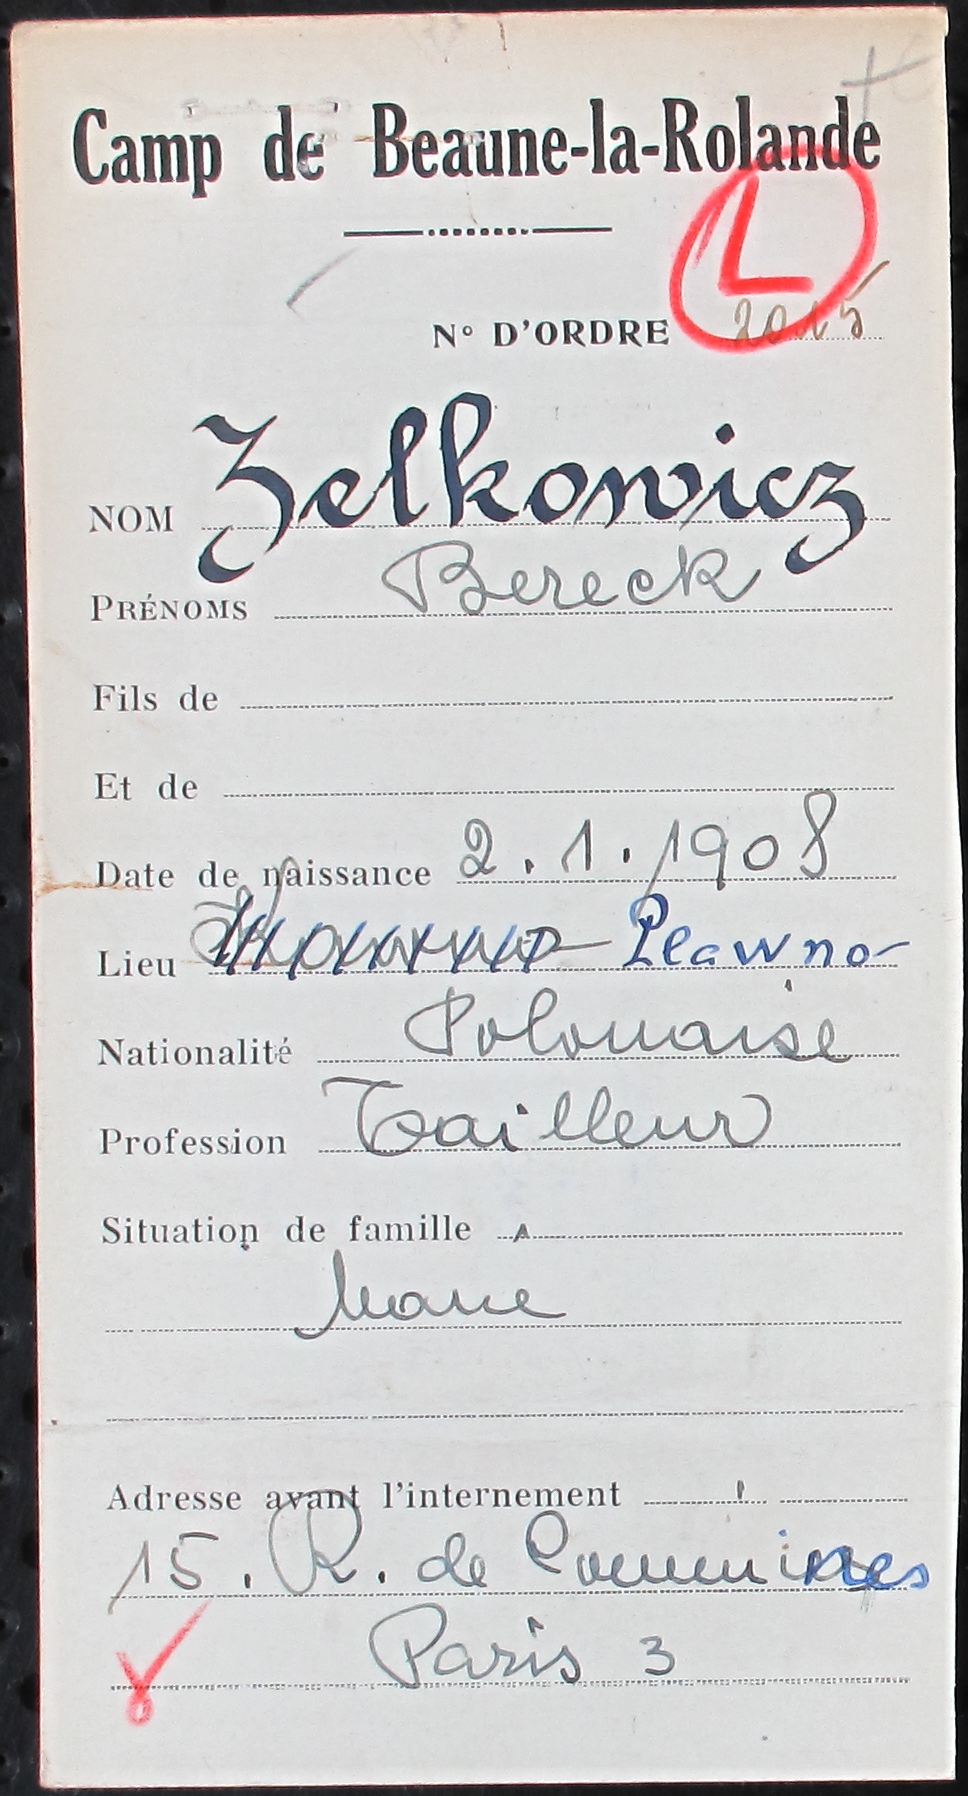 Camp de Beaune-la-Rolande
L
N° D'ORDRE 2015
NOM Zelkowicz
PRÉNOMS Bereck
Fils de
Et de
Date de naissance 2.1.1908
Lieu Plawno
Nationalité Polonaise
Profession Tailleur
Situation de famille
Marie
Adresse avant l'internement
15. R. de Commines
Paris 3